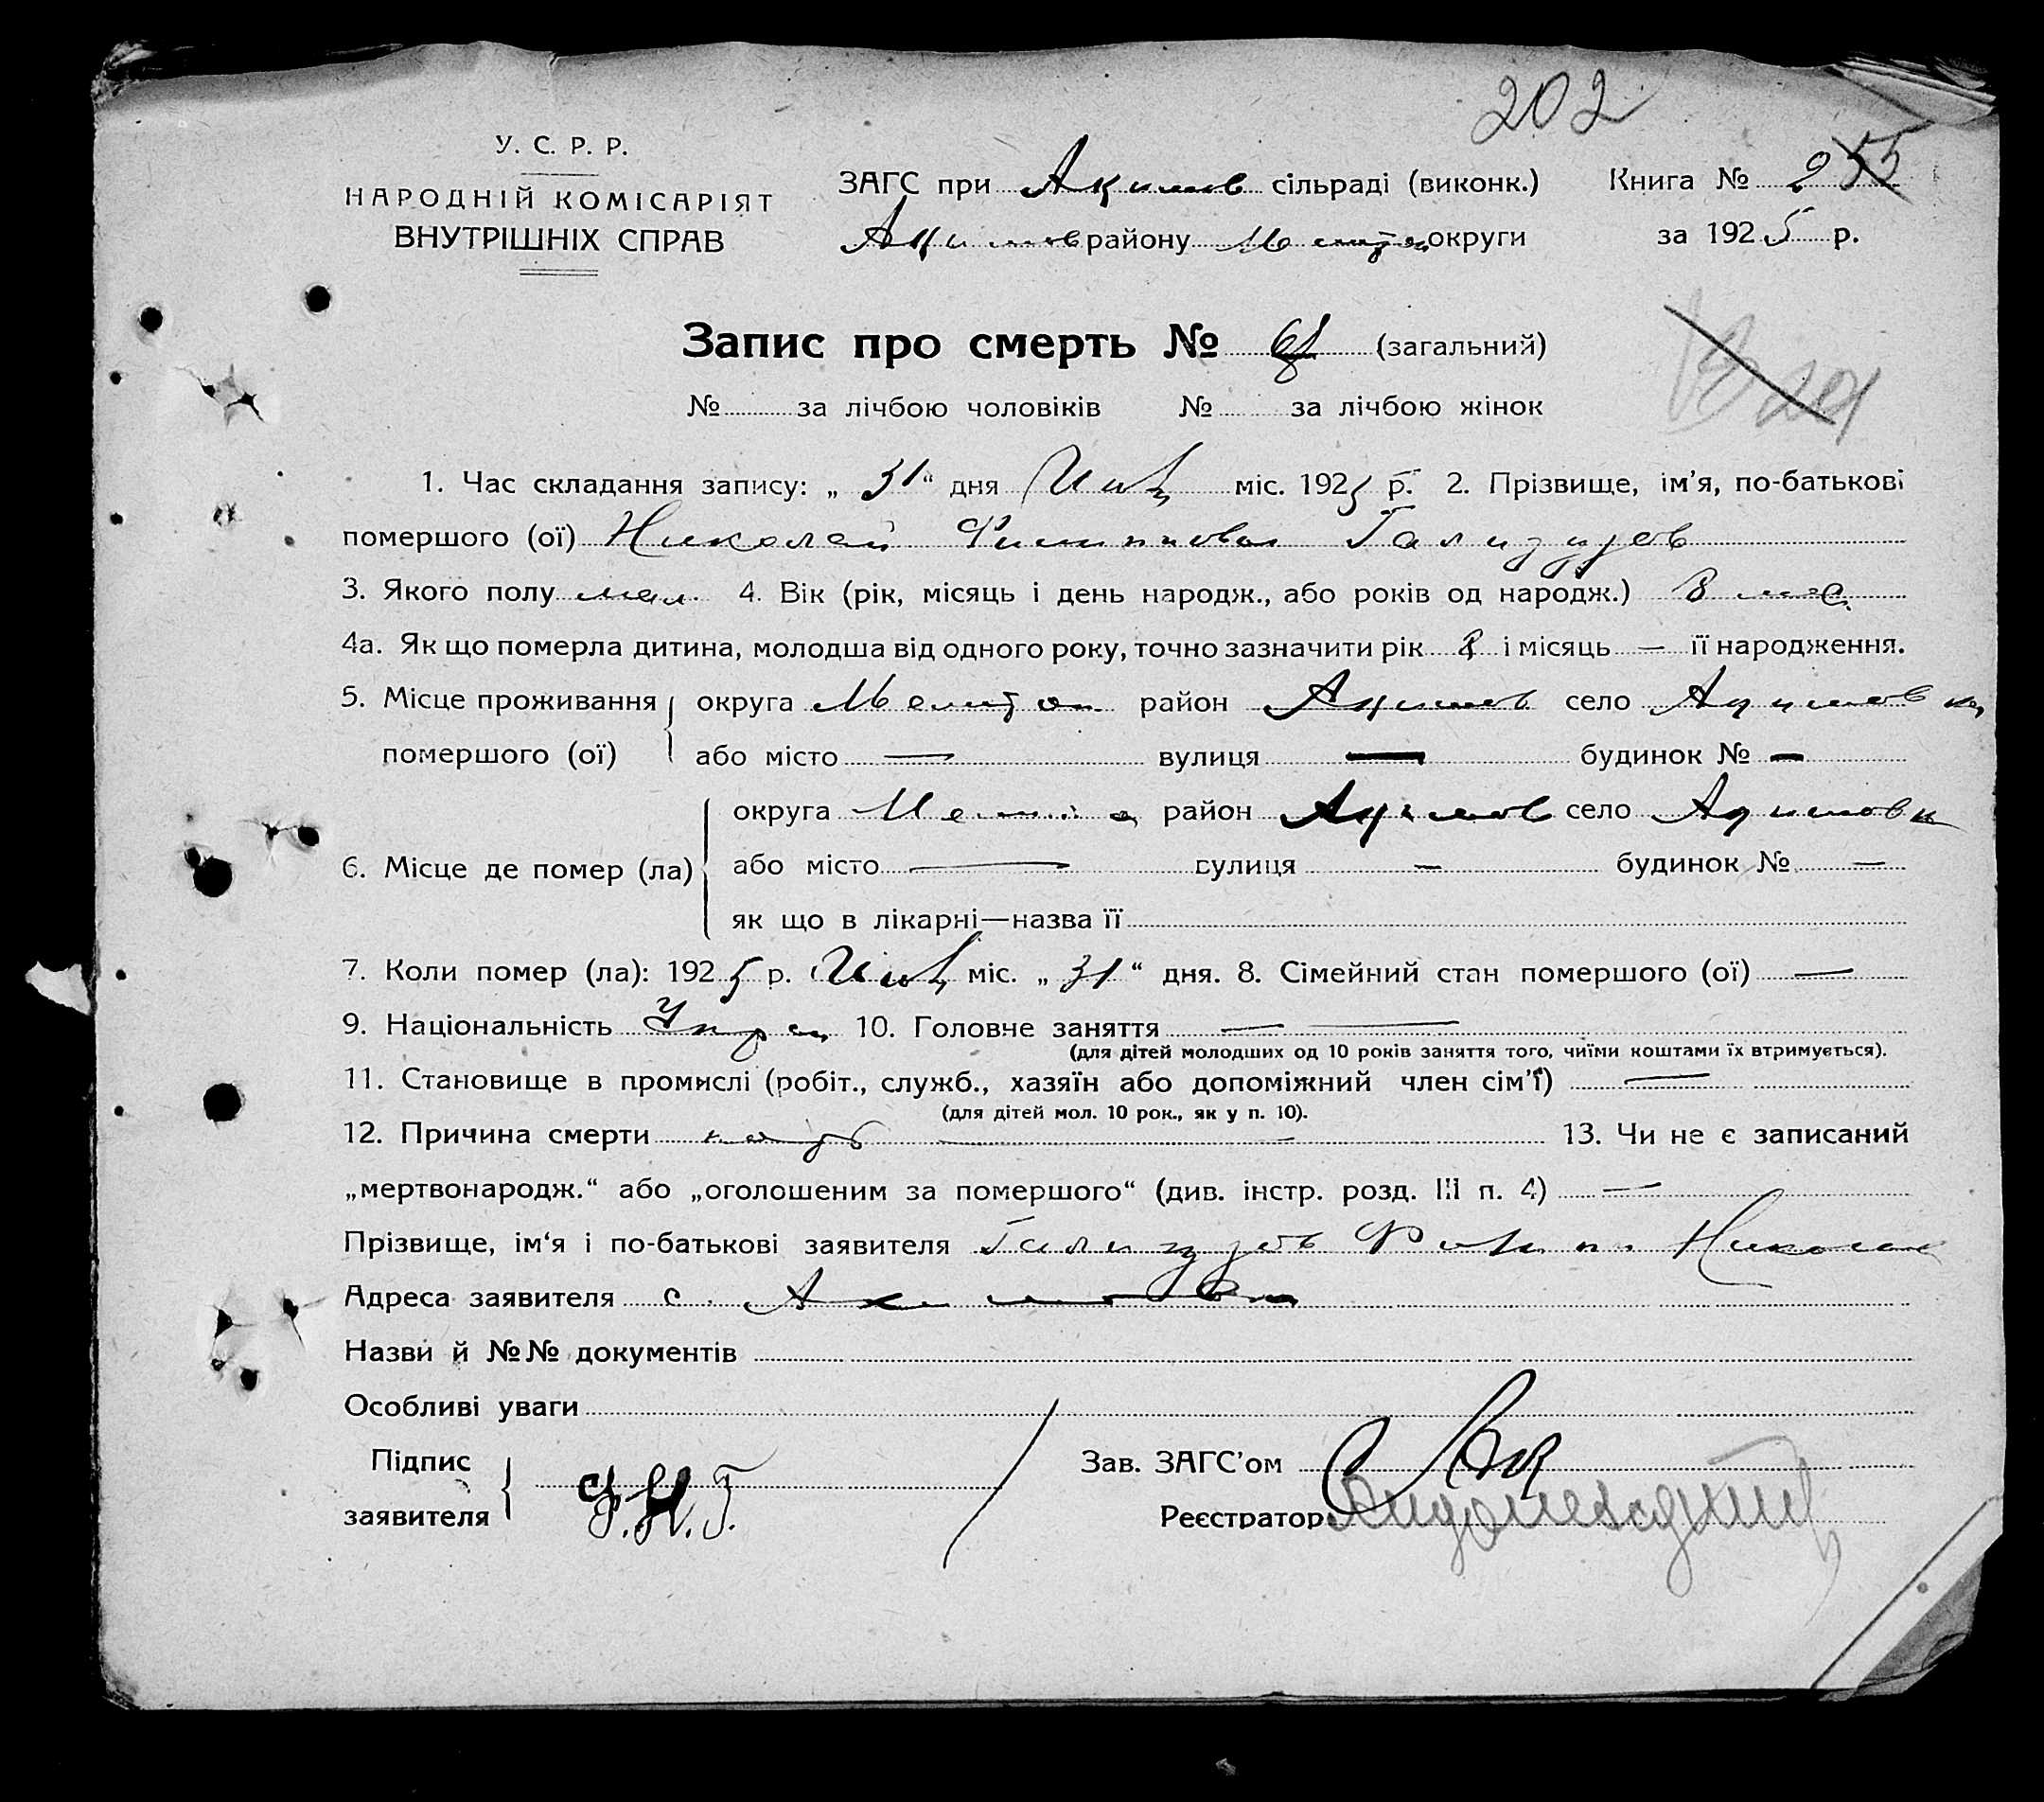 202
У. С. Р. Р.
НАРОДНІЙ КОМІСАРІЯТ
ВНУТРІШНІХ СПРАВ
ЗАГС при Акимов сільраді (виконк.) Книга № 255
Акимов району округи за 1925 р.
Запис про смерть № (загальний)
№ за лічбою чоловіків № за лічбою жінок
1. Час складання запису: „ 31 “ дня міс. 1925 р. 2. Прізвище, ім’я, по-батькові
помершого (ої) Николай
3. Якого полу 4. Вік (рік, місяць і день народж., або років од народж.) 8
4а. Як що померла дитина, молодша від одного року, точно зазначити рік 8 і місяць — її народження.
5. Місце проживання помершого (ої) округа Мелитоп район Акимов село Акимовка
або місто — вулиця — будинок № —
6. Місце де помер (ла) округа район Акимов село Акимовка
або місто — вулиця — будинок № —
як що в лікарні—назва її
7. Коли помер (ла): 1925 р. міс. „ 31 “ дня. 8. Сімейний стан помершого (ої) —
9. Національність Укра 10. Головне заняття — —
(для дітей молодших од 10 років заняття того, чиїми коштами їх втримується).
11. Становище в промислі (робіт., служб., хазяїн або допоміжний член сім’ї) —
(для дітей мол. 10 рок., як у п. 10).
12. Причина смерти — 13. Чи не є записаний
„мертвонародж.“ або „оголошеним за помершого“ (див. інстр. розд. III п. 4) —
Прізвище, ім‘я і по-батькові заявителя
Адреса заявителя с. Акимовка
Назви й №№ документів
Особливі уваги
Підпис заявителя Ф.Н.Г.
Зав. ЗАГС’ом
Реєстратор